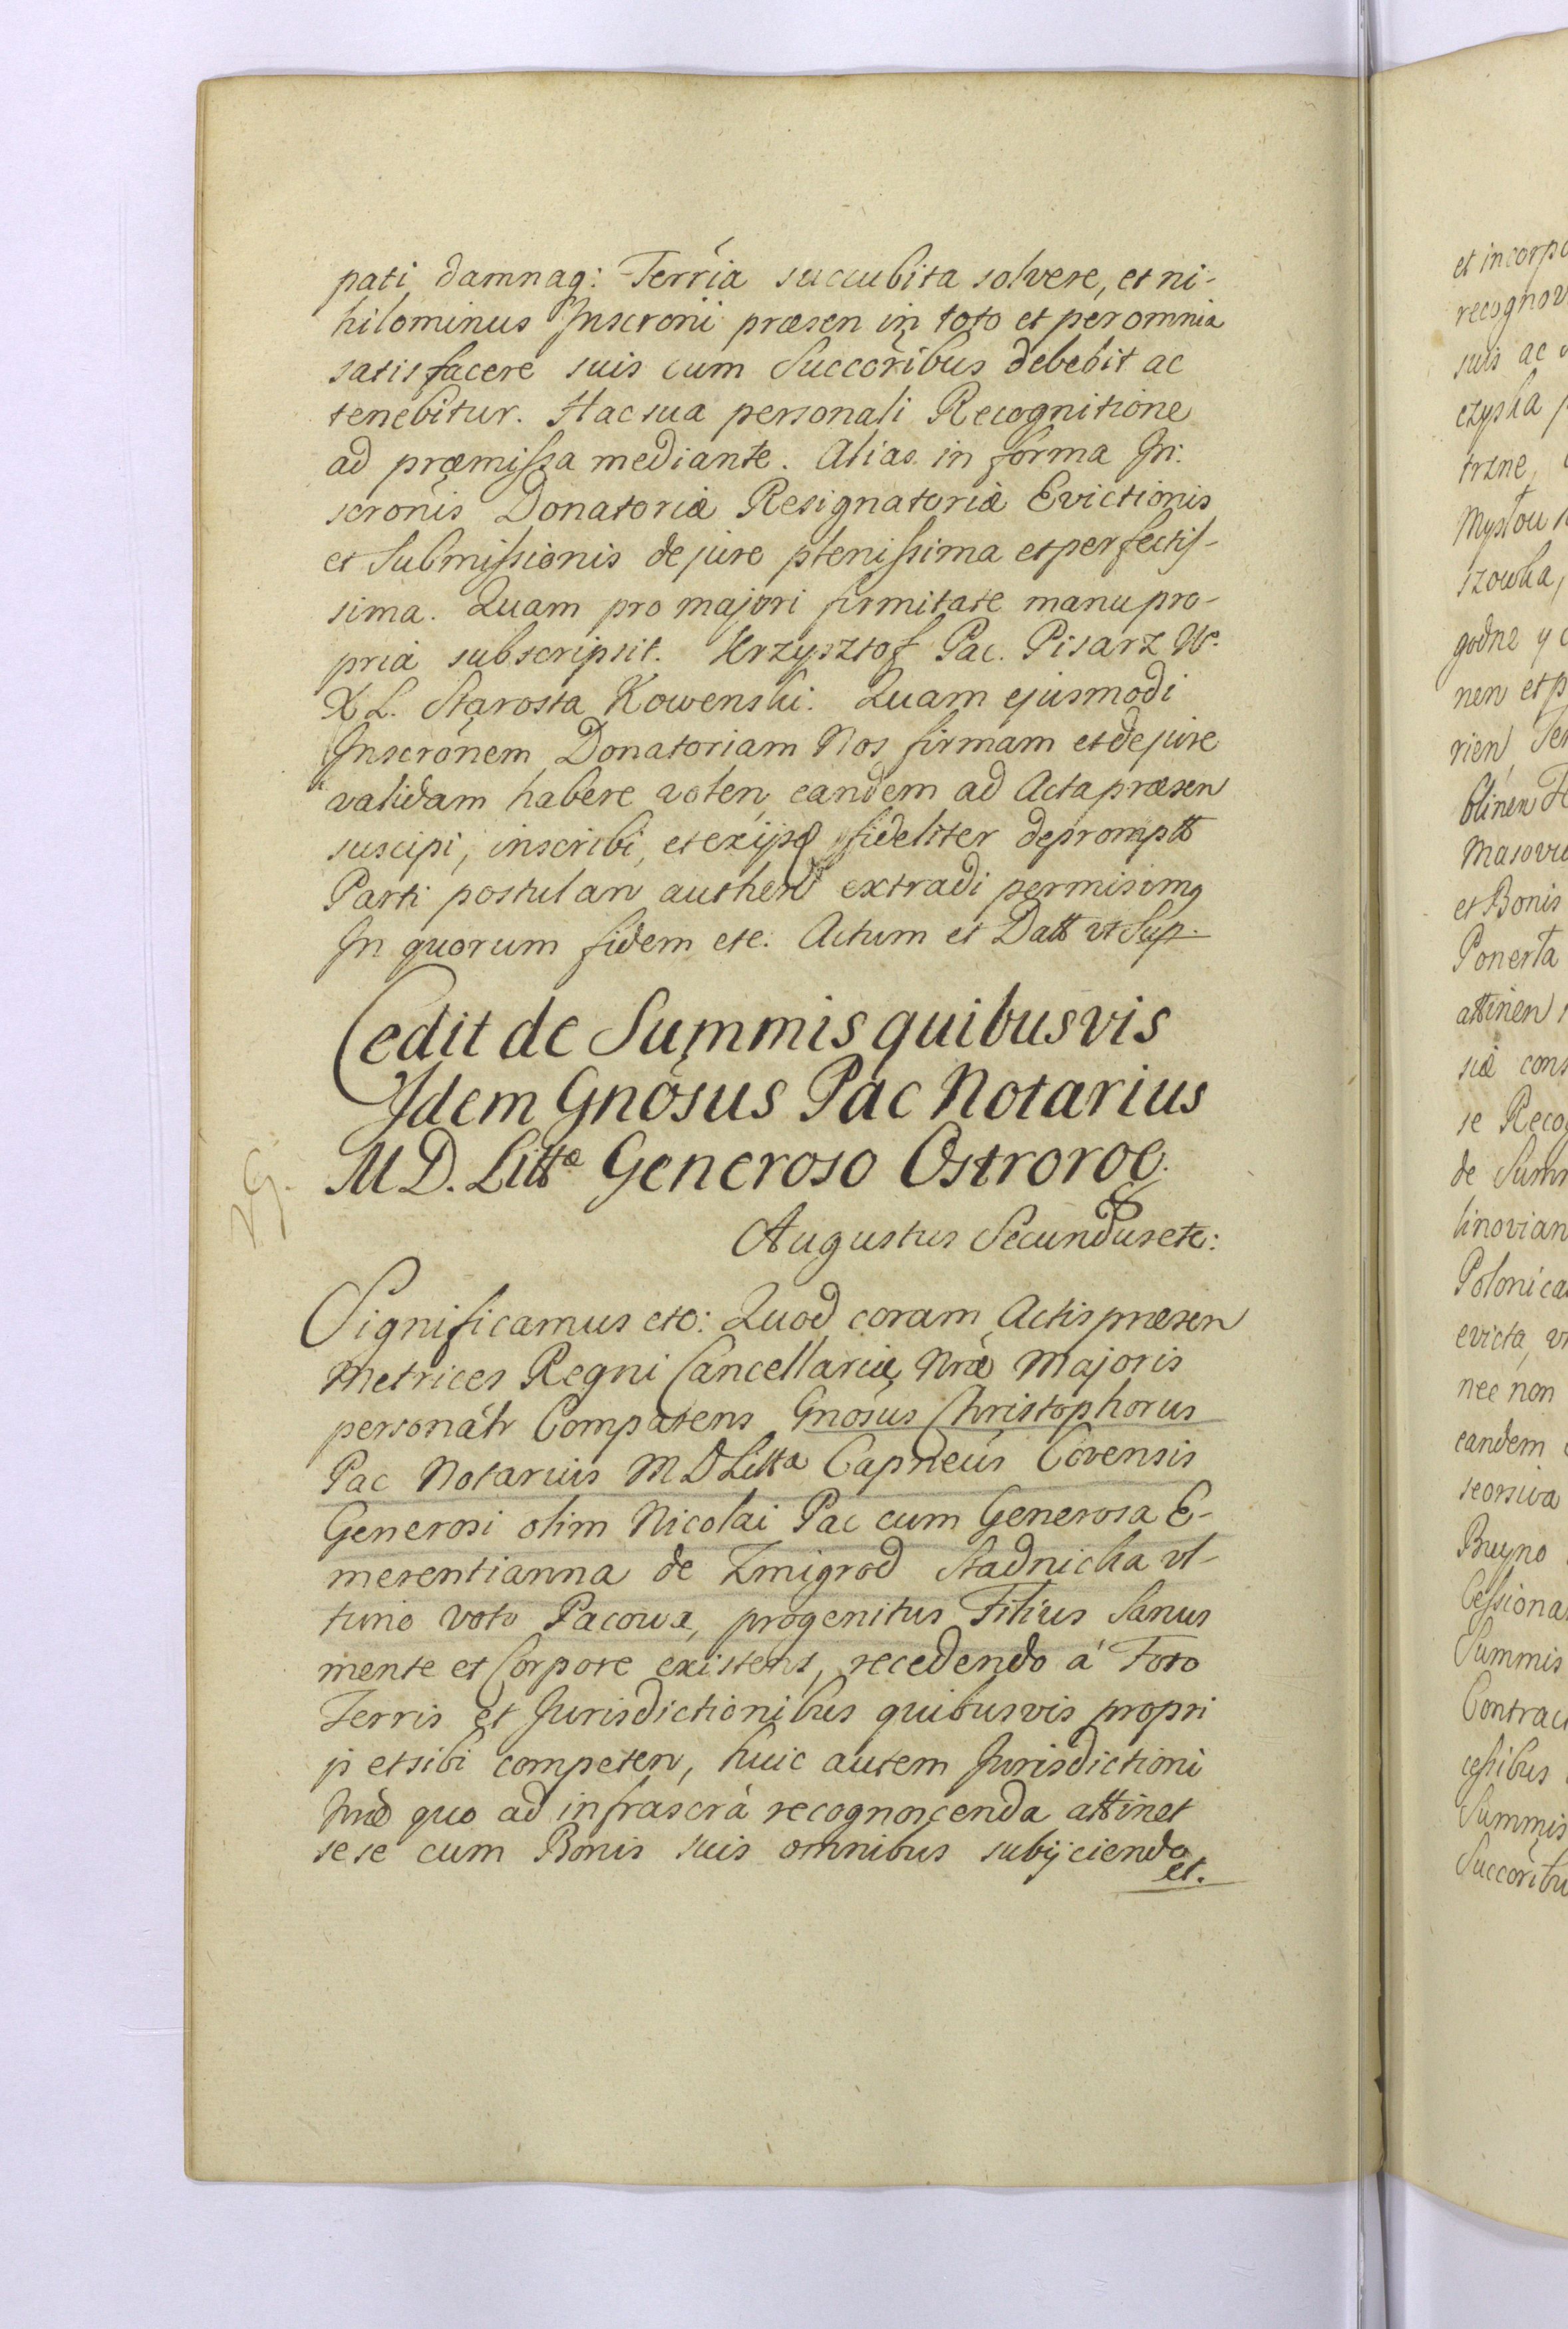 pati damnaq: Terr̃ia succubita solvere, et ni-
hilominus Inscronii præsen in toto et per omnia
satisfacere suis cum Succor̃ibus debebit ac
tenebitur. Hac sua personali Recognitione
ad præmissa mediante. Alias in forma In:
scrõnis Donatoriæ Resignatoriæ Evictionis
et Submissionis de jure plenissima et perfectis-
sima. Quam pro majori firmitate manu pro-
pria subscripsit. Krzysztof Pac. Pisarz W.
X L. Starosta Kowenski. Quam ejusmodi
Inscrõnem Donatoriam Nos firmam et de jure
validam habere volen, eandem ad Acta præsen
suscipi, inscribi, et ex ijsd fideliter deprompt
Parti postulan authen extradi permisimq
In quorum fidem etc. Actum et Datt ut Sup.
Cedit de Summis quibusvis
Idem Gnõsus Pac Notarius
M D. Litt^æ Generoso Ostrorog.
29.
Augustus Secundus etc:
Significamus etc: Quod coram Actis præsen
Metrices Regni Cancellariæ Nræ Majoris
personalr Comparens Gnõsus Christophorus
Pac Notarius M D Litt^a Capneus Covensis
Generosi olim Nicolai Pac cum Generosa E-
merentianna de Zmigrod Stadnicka ul-
timo voto Pacowa, progenitus Filius Sanus
mente et Corpore existens, recedendo á Foro
Terris et Jurisdictionibus quibusvis propri
js et sibi competen, huic autem Jurisdictioni
quo ad infrascrã recognoscenda attinet
sese cum Bonis suis omnibus subijciendo
et.
et incorpo
recognov
suis ac
czyska
trzne,
Mystou
szowka,
godne y
nen et p
rien, Ter
blinen
Masovi
et Bonis
Ponerta
attinen
siæ cons
se Reco
de Summ
linovian
Polonica
evicta, v
nec non
eandem
seorsiva
Buyno
Cessiona
Summis
Contrac
cessibus
Summis
Succor̃ibu